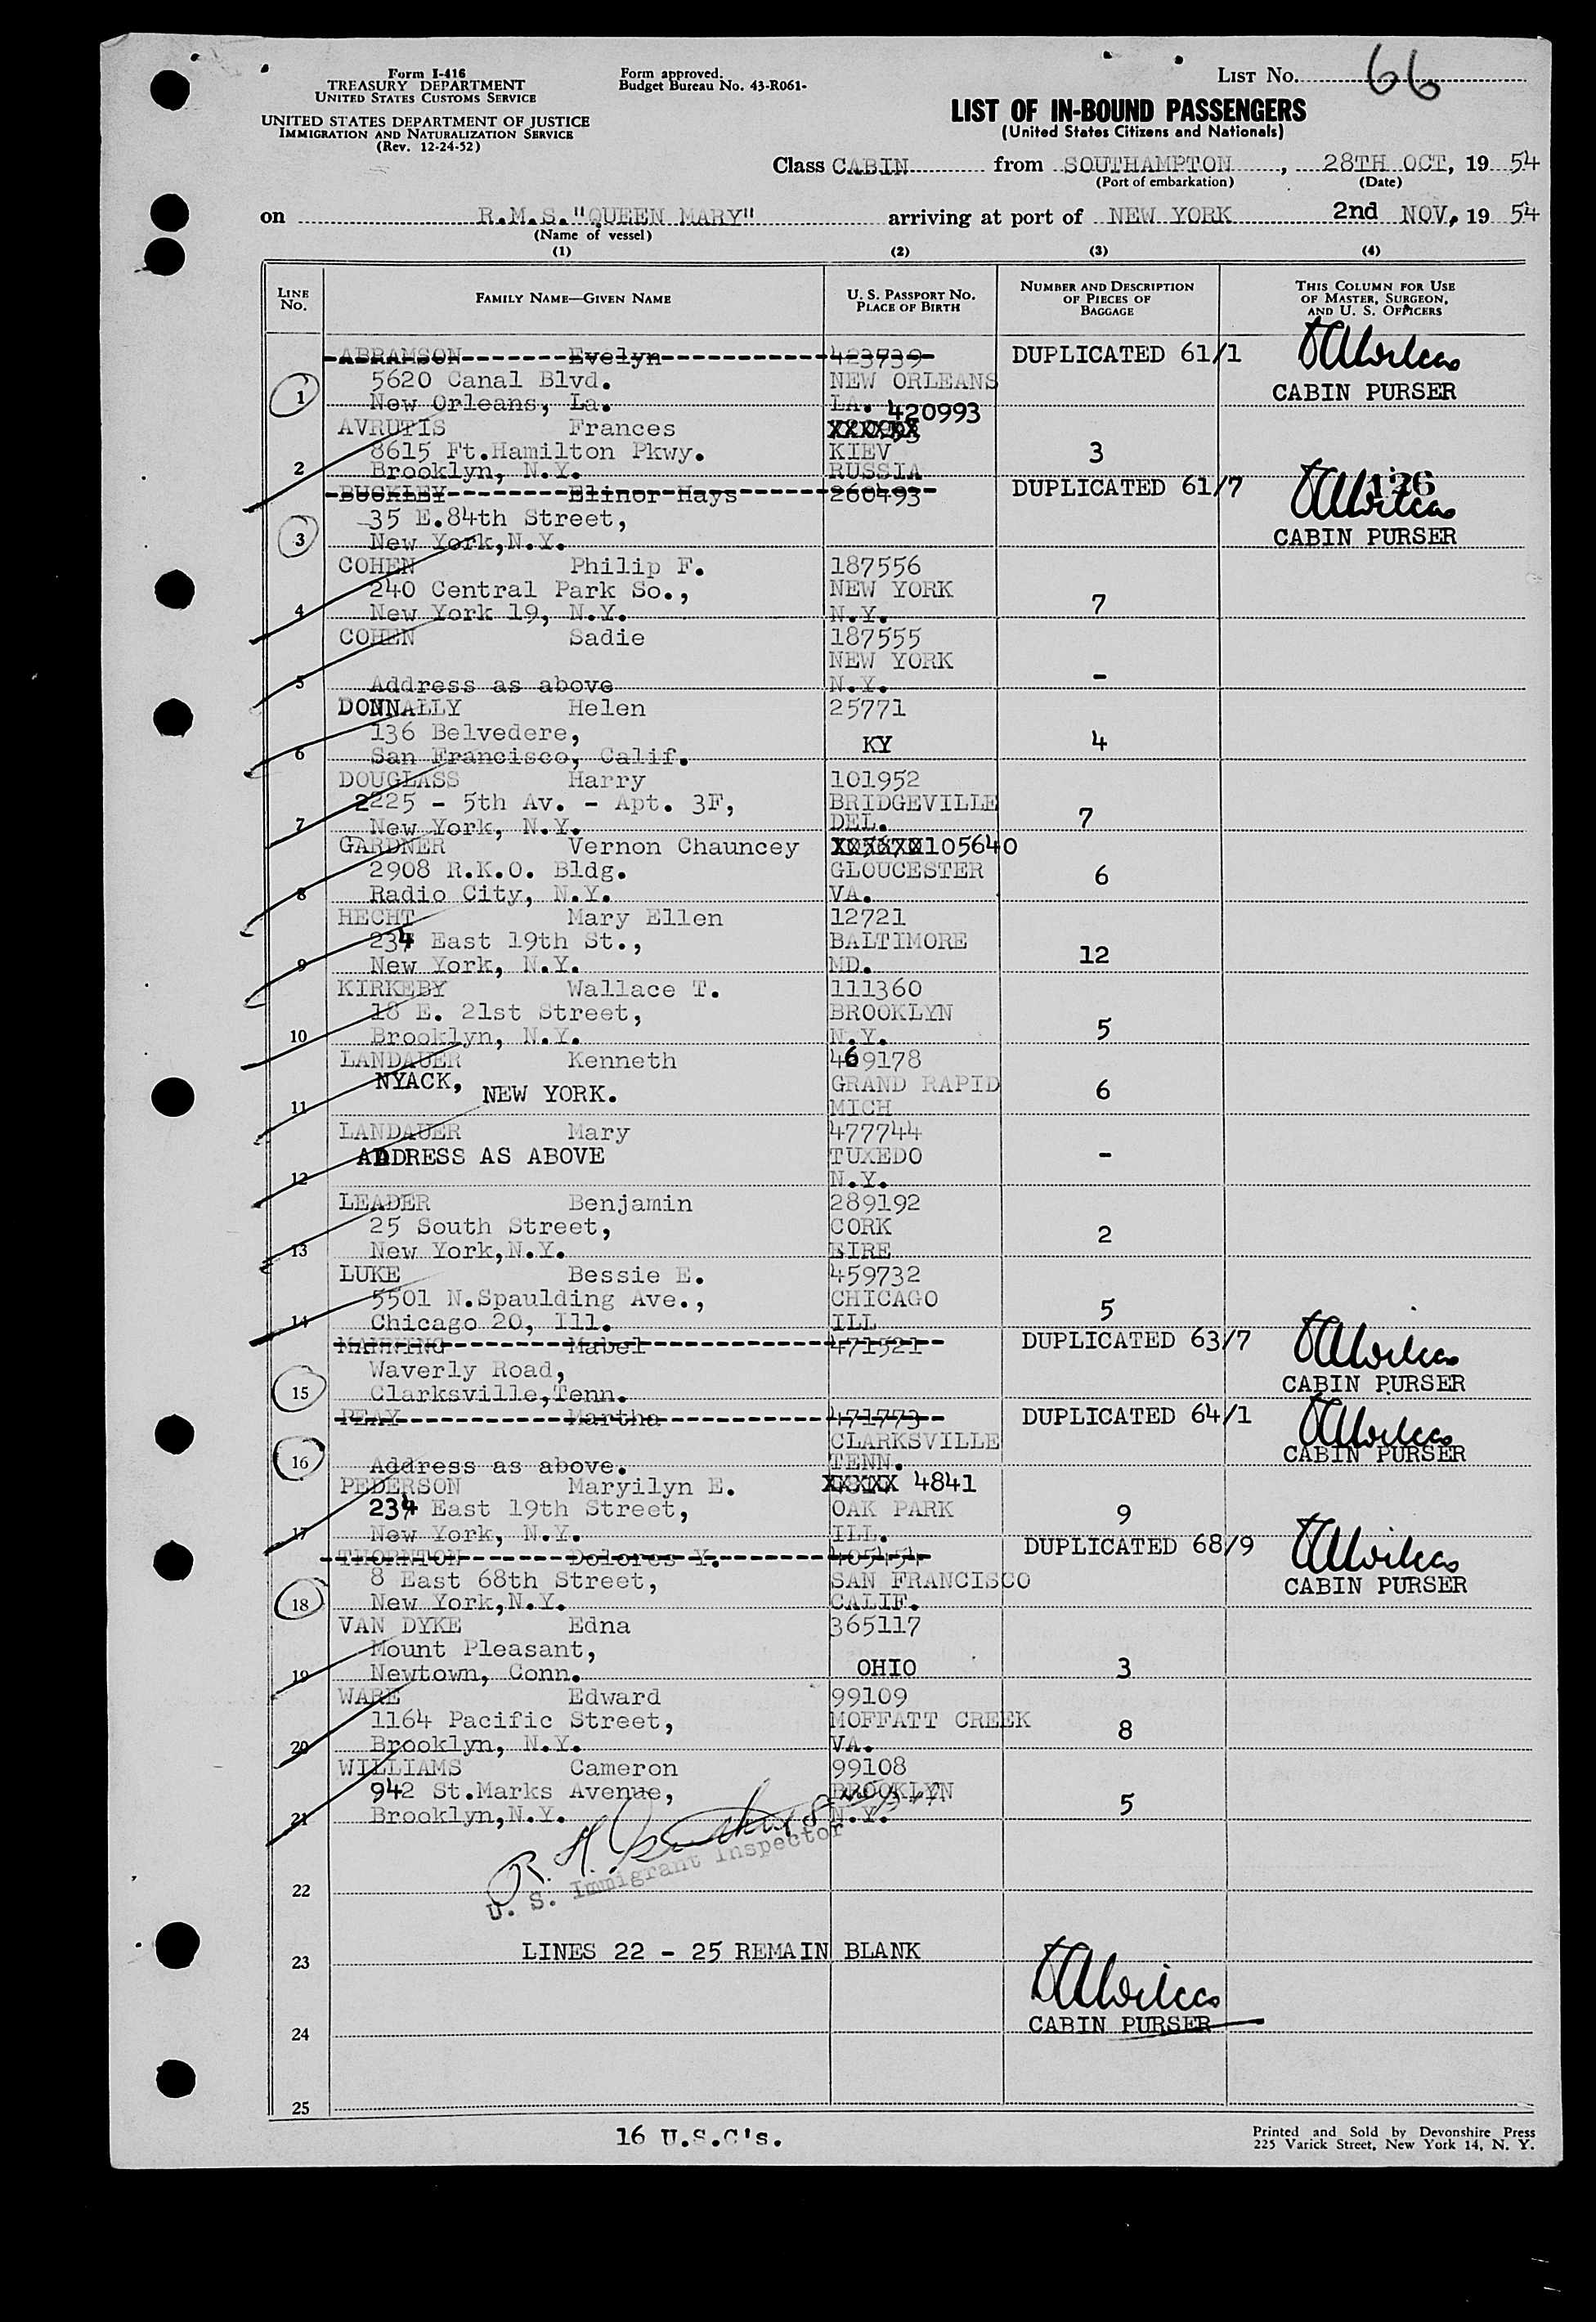 Form I-416
TREASURY DEPARTMENT
UNITED STATES CUSTOMS SERVICE
UNITED STATES DEPARTMENT OF JUSTICE
IMMIGRATION AND NATURALIZATION SERVICE
(Rev. 12-24-52)
Form approved.
Budget Bureau No. 43-R061-
LIST No. 66
LIST OF IN-BOUND PASSENGERS
(United States Citizens and Nationals)
Class CABIN from SOUTHAMPTON, 28TH OCT, 1954
(Port of embarkation) (Date)
on R.M.S."QUEEN MARY" arriving at port of NEW YORK 2nd NOV, 1954
(Name of vessel)
(1) (2) (3) (4)
LINE No. FAMILY NAME—GIVEN NAME U. S. PASSPORT NO. PLACE OF BIRTH NUMBER AND DESCRIPTION OF PIECES OF BAGGAGE THIS COLUMN FOR USE OF MASTER, SURGEON, AND U. S. OFFICERS
ABRAMSON Evelyn 423739 DUPLICATED 61/1
5620 Canal Blvd. NEW ORLEANS CABIN PURSER
1 New Orleans, La. LA.
420993
AVRUTIS Frances
8615 Ft.Hamilton Pkwy. KIEV 3
2 Brooklyn, N.Y. RUSSIA
BUCKLEY Elinor Hays 260493 DUPLICATED 61/7 126
35 E.84th Street,
3 New York,N.Y. CABIN PURSER
COHEN Philip F. 187556
240 Central Park So., NEW YORK 7
4 New York 19, N.Y. N.Y.
COHEN Sadie 187555
NEW YORK -
5 Address as above N.Y.
DONNALLY Helen 25771
136 Belvedere, KY 4
6 San Francisco, Calif.
DOUGLASS Harry 101952
2225 - 5th Av. - Apt. 3F, BRIDGEVILLE 7
7 New York, N.Y. DEL.
GARDNER Vernon Chauncey 105640
2908 R.K.O. Bldg. GLOUCESTER 6
8 Radio City, N.Y. VA.
HECHT Mary Ellen 12721
234 East 19th St., BALTIMORE 12
9 New York, N.Y. MD.
KIRKEBY Wallace T. 111360
18 E. 21st Street, BROOKLYN 5
10 Brooklyn, N.Y. N.Y.
LANDAUER Kenneth 469178
NYACK, NEW YORK. GRAND RAPID 6
11 MICH
LANDAUER Mary 477744
ADDRESS AS ABOVE TUXEDO -
12 N.Y.
LEADER Benjamin 289192
25 South Street, CORK 2
13 New York,N.Y. EIRE
LUKE Bessie E. 459732
5501 N.Spaulding Ave., CHICAGO 5
14 Chicago 20, Ill. ILL
MANNING Mabel 471521 DUPLICATED 63/7
Waverly Road,
15 Clarksville,Tenn. CABIN PURSER
PEAY Martha 471773 DUPLICATED 64/1
CLARKSVILLE CABIN PURSER
16 Address as above. TENN.
PEDERSON Maryilyn E. XXXXX 4841
234 East 19th Street, OAK PARK 9
17 New York, N.Y. ILL.
THORNTON Dolores Y. 405454 DUPLICATED 68/9
8 East 68th Street, SAN FRANCISCO CABIN PURSER
18 New York,N.Y. CALIF.
VAN DYKE Edna 365117
Mount Pleasant, OHIO 3
19 Newtown, Conn.
WARE Edward 99109
1164 Pacific Street, MOFFATT CREEK 8
20 Brooklyn, N.Y. VA.
WILLIAMS Cameron 99108
942 St.Marks Avenue, BROOKLYN 5
21 Brooklyn,N.Y. N.Y.
U. S. Immigrant Inspector
22
LINES 22 - 25 REMAIN BLANK
23
CABIN PURSER
24
25
16 U.S.C's.
Printed and Sold by Devonshire Press
225 Varick Street, New York 14, N. Y.